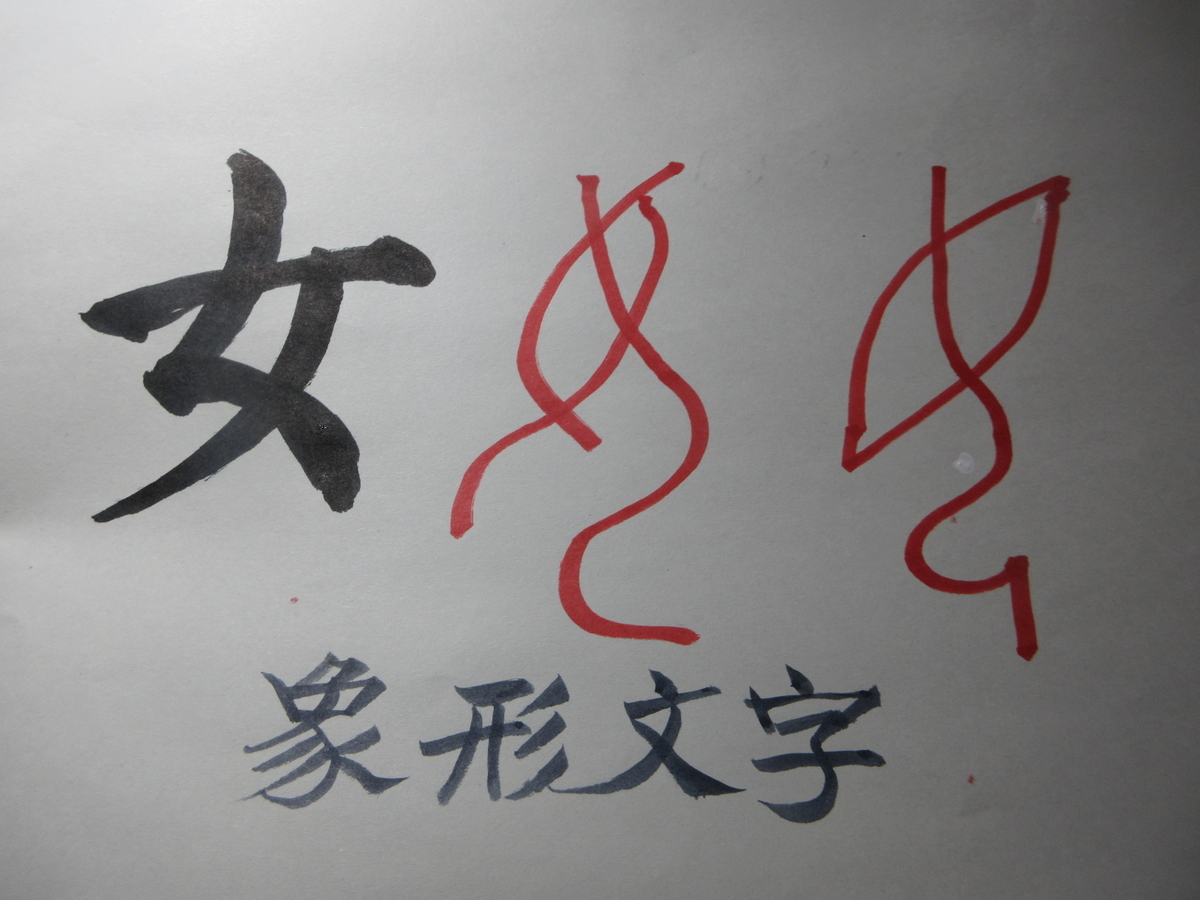 女
象形文字